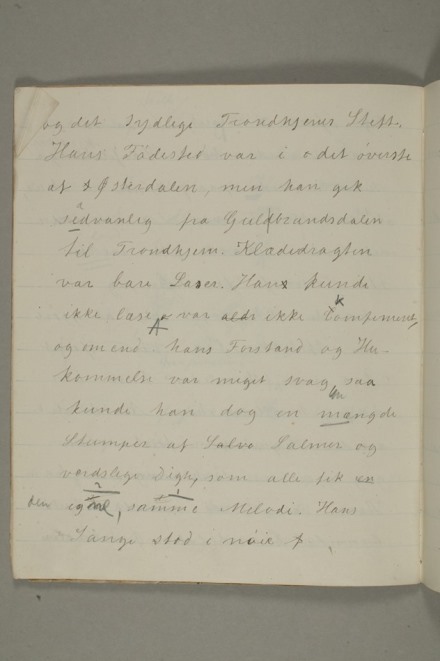 og det sydlige Trondhjems Stift.
Hans Födested var i det överste
af Østerdalen, men han gik
sædvanlig fra Guldbrandsdalen
til Trondhjem. Klædedragten
var bare Laser. Han kunde
ikke læse, var ikke Komfirmeret,
og om end hans Forstand og Hu-
kommelse var meget svag, saa
kunde han dog en mængde
Stumper af Salmer og
verdslige Digte, som alle fik
den samme Melodi. Hans
Sange stod i nöie